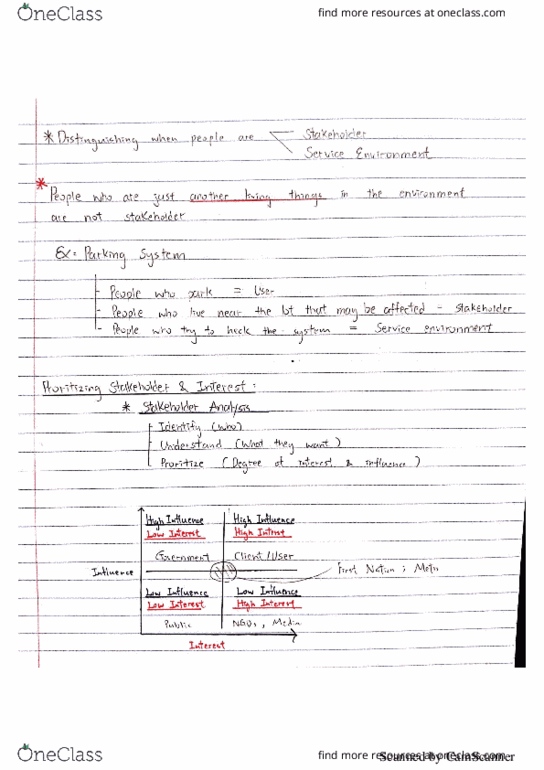 OneClass
find more resources at oneclass.com
* Distinguishing when people are
Stakeholder
Service Environment
* People who are just another living things in the environment
are not stakeholder
Ex: Parking System
- People who park = User
- People who live near the lot that may be affected - stakeholder
- People who try to hack the system = Service environment
Prioritizing Stakeholder & Interest:
* Stakeholder Analysis
- Identify (who)
- Understand (What they want)
- Prioritize (Degree of interest & influence)
High Influence
Low Interest
High Influence
High Intrest
Government
Client/User
Influence
First Nation ;
Low Influence
Low Interest
Low Influence
High Interest
Public
NGOs, Media
Interest
OneClass
find more resources at oneclass.com
Scanned by CamScanner